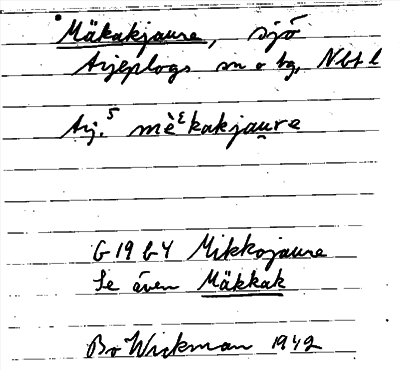 Mäkakjaure, sjö
Arjeplogs sn o tg, Nbt l
Arj.⁵ mè𝆩kakjau̯re
G 19 b4 Mikkojaure
Se även Mäkkak
Bo Wickman 1942